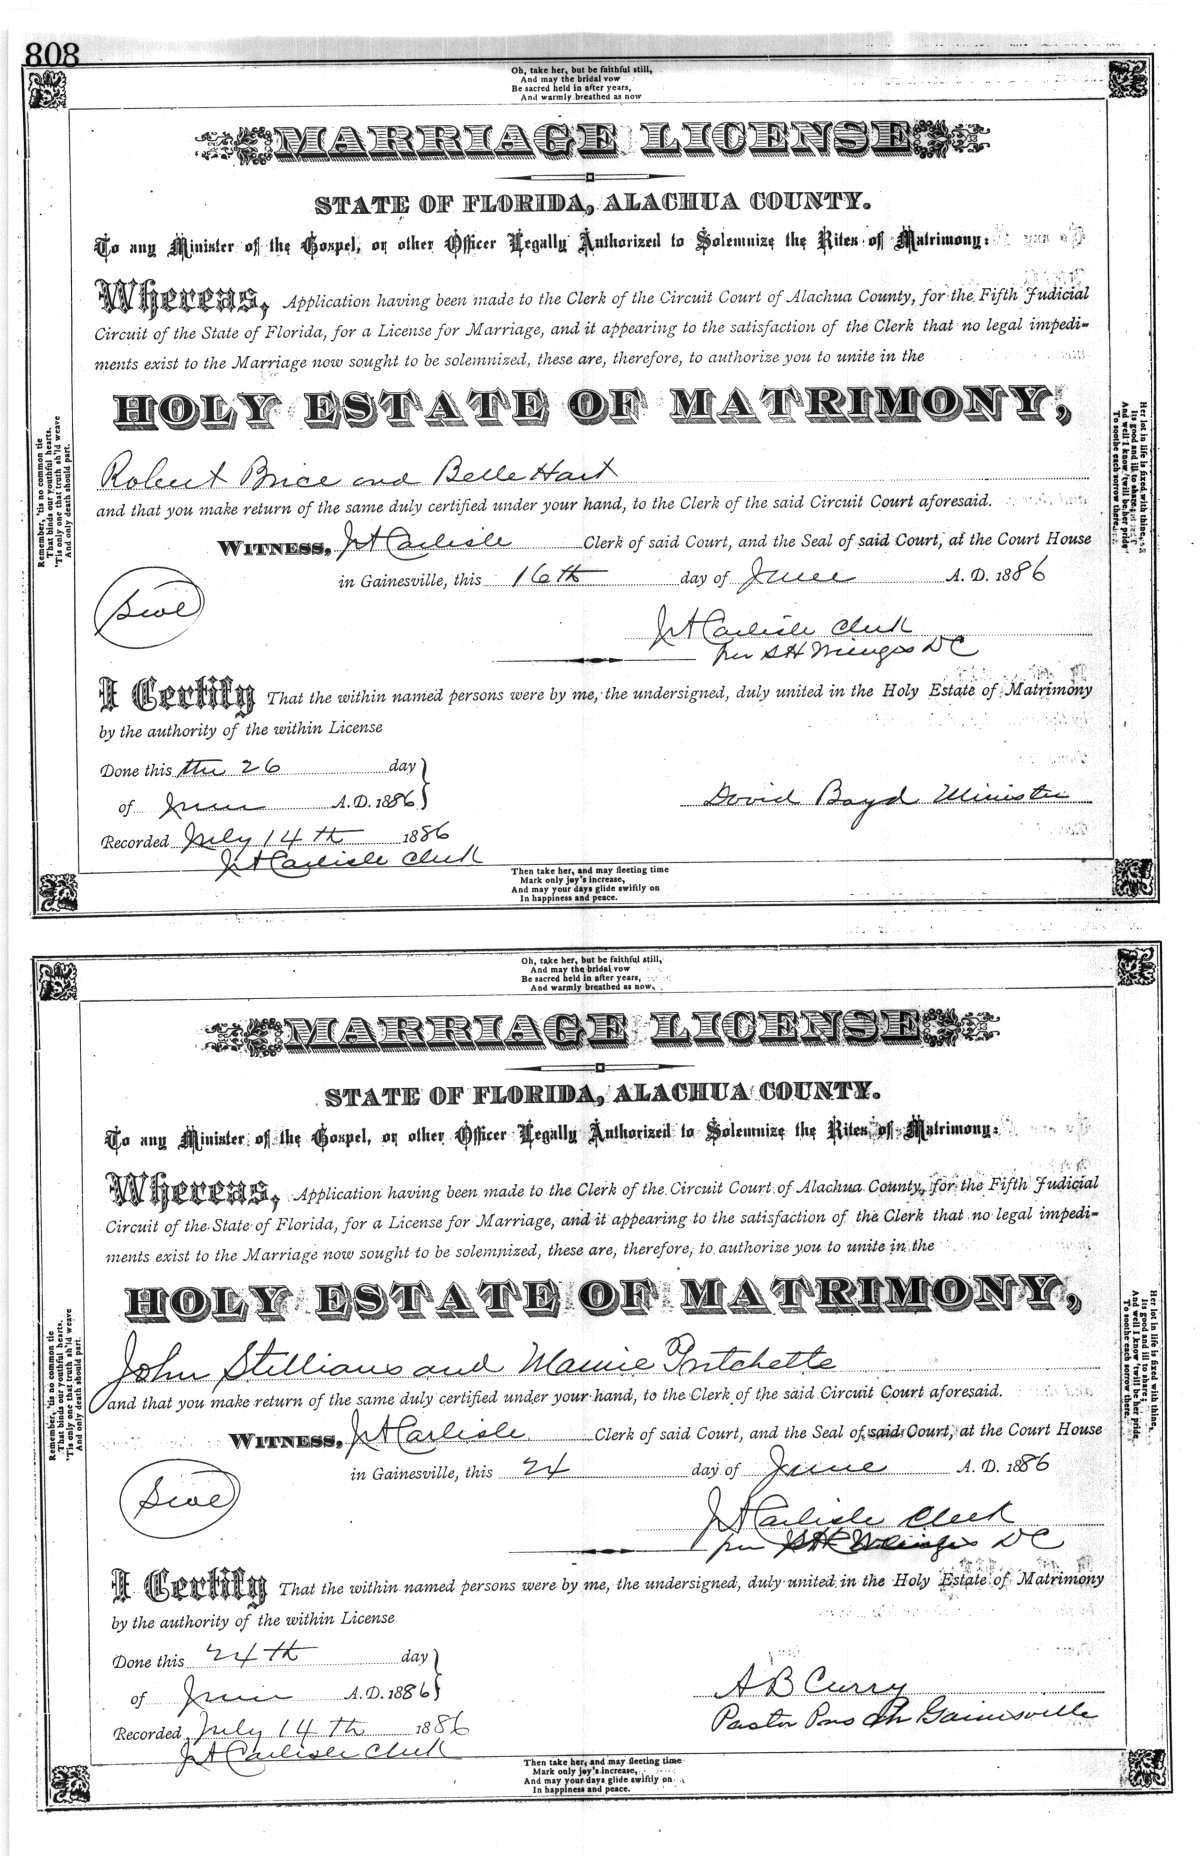 808
Oh, take her, but be faithful still,
And may the bridal vow
Be sacred held in after years,
And warmly breathed as now
MARRIAGE LICENSE
STATE OF FLORIDA, ALACHUA COUNTY.
To any Minister of the Gospel, or other Officer Legally Authorized to Solemnize the Rites of Matrimony:
Whereas, Application having been made to the Clerk of the Circuit Court of Alachua County, for the Fifth Judicial
Circuit of the State of Florida, for a License for Marriage, and it appearing to the satisfaction of the Clerk that no legal impedi-
ments exist to the Marriage now sought to be solemnized, these are, therefore, to authorize you to unite in the
HOLY ESTATE OF MATRIMONY,
Robert Brice and Belle Hart
and that you make return of the same duly certified under your hand, to the Clerk of the said Circuit Court aforesaid.
WITNESS, J A Carlisle Clerk of said Court, and the Seal of said Court, at the Court House
in Gainesville, this 16th day of June A. D. 1886
Seal
J A Carlisle Clerk
per S H DC
I Certify That the within named persons were by me, the undersigned, duly united in the Holy Estate of Matrimony
by the authority of the within License
Done this the 26 day
of June A. D. 1886
David Boyd Minister
Recorded July 14th 1886
J A Carlisle Clerk
Remember, 'tis no common tie
That binds our youthful hearts.
'Tis only one that truth sh'ld weave
And only death should part.
Her lot in life is fixed with thine,
Its good and ill to share;
And well I know 'twill be her pride
To soothe each sorrow there.
Then take her, and may fleeting time
Mark only joy's increase,
And may your days glide swiftly on
In happiness and peace.
Oh, take her, but be faithful still,
And may the bridal vow
Be sacred held in after years,
And warmly breathed as now.
MARRIAGE LICENSE
STATE OF FLORIDA, ALACHUA COUNTY.
To any Minister of the Gospel, or other Officer Legally Authorized to Solemnize the Rites of Matrimony:
Whereas, Application having been made to the Clerk of the Circuit Court of Alachua County, for the Fifth Judicial
Circuit of the State of Florida, for a License for Marriage, and it appearing to the satisfaction of the Clerk that no legal impedi-
ments exist to the Marriage now sought to be solemnized, these are, therefore, to authorize you to unite in the
HOLY ESTATE OF MATRIMONY,
John Stillians and Mamie Pritchette
and that you make return of the same duly certified under your hand, to the Clerk of the said Circuit Court aforesaid.
WITNESS, J A Carlisle Clerk of said Court, and the Seal of said Court, at the Court House
in Gainesville, this 24 day of June A. D. 1886
Seal
J A Carlisle Clerk
per S H DC
I Certify That the within named persons were by me, the undersigned, duly united in the Holy Estate of Matrimony
by the authority of the within License
Done this 24th day
of June A. D. 1886
A B Curry
Pastor Pres Ch Gainesville
Recorded July 14th 1886
J A Carlisle Clerk
Remember, 'tis no common tie
That binds our youthful hearts.
'Tis only one that truth sh'ld weave
And only death should part.
Her lot in life is fixed with thine,
Its good and ill to share;
And well I know 'twill be her pride
To soothe each sorrow there.
Then take her, and may fleeting time
Mark only joy's increase,
And may your days glide swiftly on
In happiness and peace.